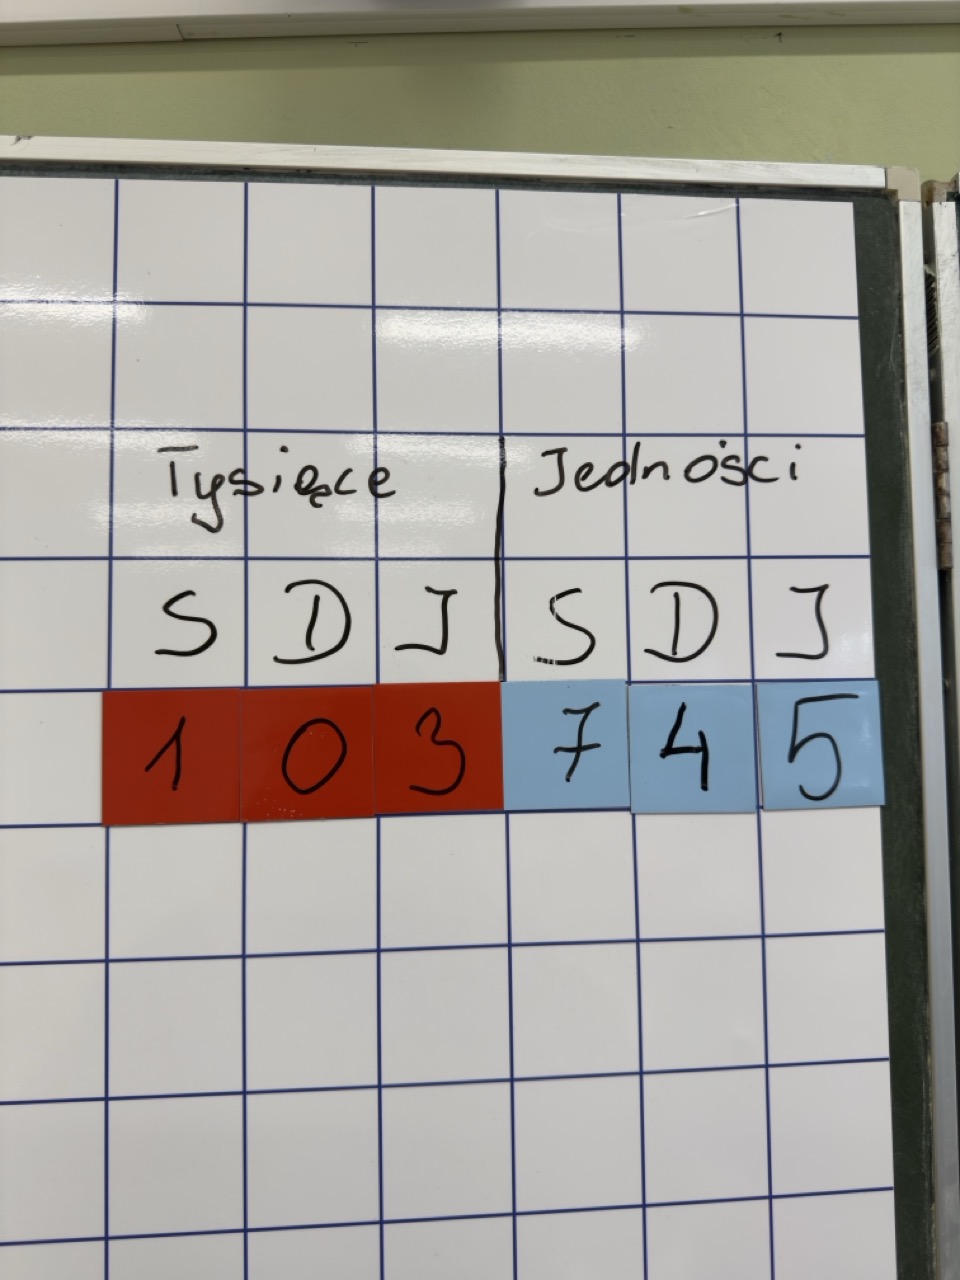 Tysięce Jedności
S D J S D J
1 0 3 7 4 5